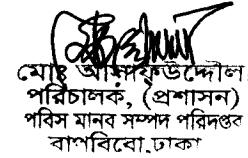 মোঃ আশ্রাফউদ্দৌলা
পরিচালক, (প্রশাসন)
পবিস মানব সম্পদ পরিদপ্তর
বাপবিবো, ঢাকা